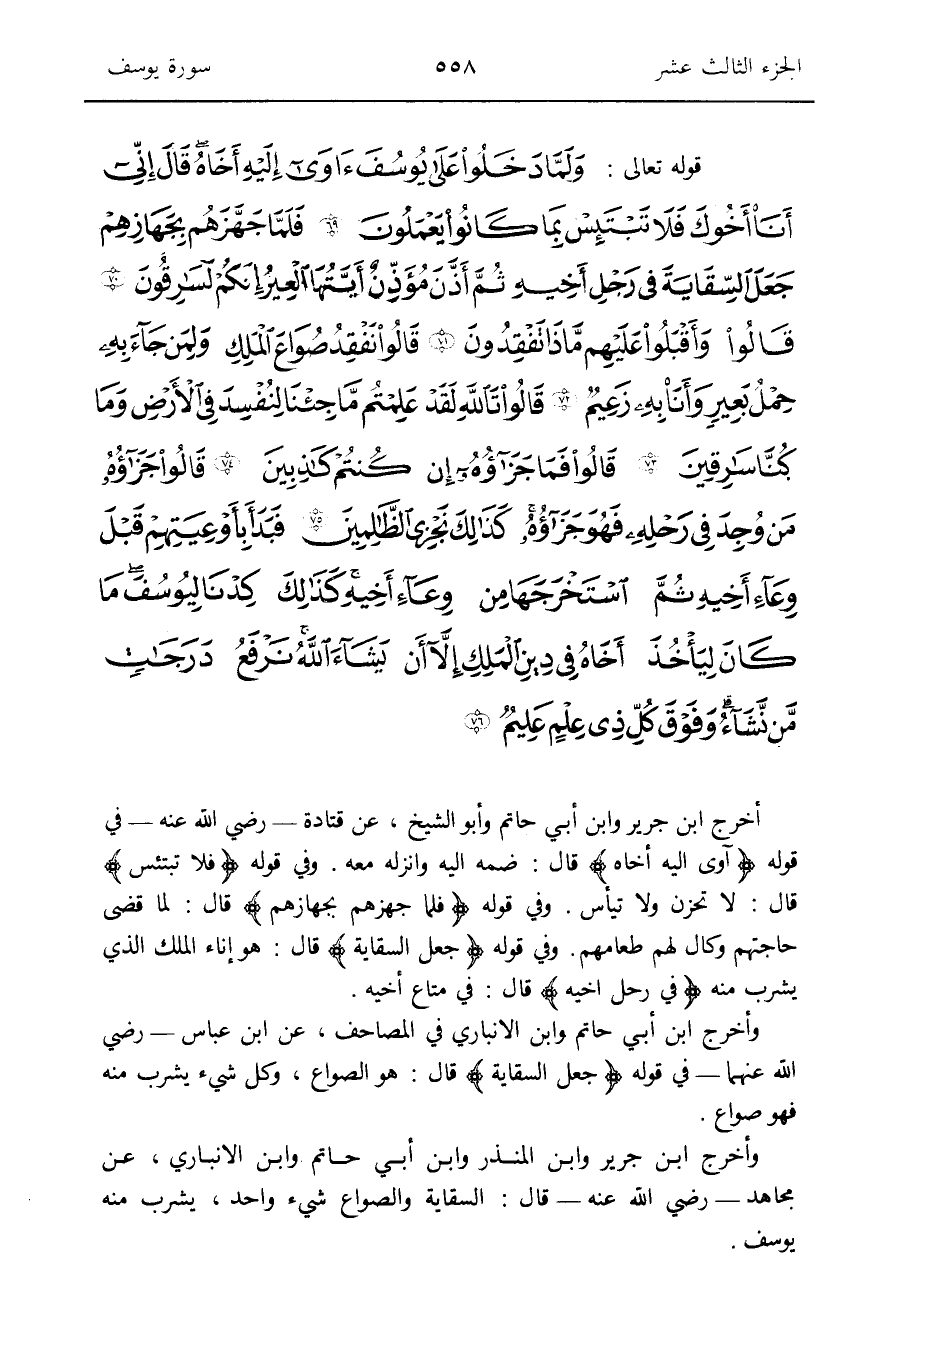 الجزء الثالث عشر
٥٥٨
سورة يوسف
قوله تعالى : وَلَمَّا دَخَلُوا۟ عَلَىٰ يُوسُفَ ءَاوَىٰٓ إِلَيْهِ أَخَاهُ ۖ قَالَ إِنِّىٓ
أَنَا۠ أَخُوكَ فَلَا تَبْتَئِسْ بِمَا كَانُوا۟ يَعْمَلُونَ ٦٩ فَلَمَّا جَهَّزَهُم بِجَهَازِهِمْ
جَعَلَ ٱلسِّقَايَةَ فِى رَحْلِ أَخِيهِ ثُمَّ أَذَّنَ مُؤَذِّنٌ أَيَّتُهَا ٱلْعِيرُ إِنَّكُمْ لَسَٰرِقُونَ ٧٠
قَالُوا۟ وَأَقْبَلُوا۟ عَلَيْهِم مَّاذَا تَفْقِدُونَ ٧١ قَالُوا۟ نَفْقِدُ صُوَاعَ ٱلْمَلِكِ وَلِمَن جَآءَ بِهِۦ
حِمْلُ بَعِيرٍ وَأَنَا۠ بِهِۦ زَعِيمٌ ٧٢ قَالُوا۟ تَٱللَّهِ لَقَدْ عَلِمْتُم مَّا جِئْنَا لِنُفْسِدَ فِى ٱلْأَرْضِ وَمَا
كُنَّا سَٰرِقِينَ ٧٣ قَالُوا۟ فَمَا جَزَٰٓؤُهُۥٓ إِن كُنتُمْ كَٰذِبِينَ ٧٤ قَالُوا۟ جَزَٰٓؤُهُۥ
مَن وُجِدَ فِى رَحْلِهِۦ فَهُوَ جَزَٰٓؤُهُۥ ۚ كَذَٰلِكَ نَجْزِى ٱلظَّٰلِمِينَ ٧٥ فَبَدَأَ بِأَوْعِيَتِهِمْ قَبْلَ
وِعَآءِ أَخِيهِ ثُمَّ ٱسْتَخْرَجَهَا مِن وِعَآءِ أَخِيهِ ۚ كَذَٰلِكَ كِدْنَا لِيُوسُفَ ۖ مَا
كَانَ لِيَأْخُذَ أَخَاهُ فِى دِينِ ٱلْمَلِكِ إِلَّآ أَن يَشَآءَ ٱللَّهُ ۚ نَرْفَعُ دَرَجَٰتٍ
مَّن نَّشَآءُ ۗ وَفَوْقَ كُلِّ ذِى عِلْمٍ عَلِيمٌ ٧٦
أخرج ابن جرير وابن أبي حاتم وأبو الشيخ ، عن قتادة — رضي الله عنه — في
قوله ﴿ آوى اليه أخاه ﴾ قال : ضمه اليه وانزله معه . وفي قوله ﴿ فلا تبتئس ﴾
قال : لا تحزن ولا تيأس . وفي قوله ﴿ فلما جهزهم بجهازهم ﴾ قال : لما قضى
حاجتهم وكال لهم طعامهم. وفي قوله ﴿ جعل السقاية ﴾ قال : هو إناء الملك الذي
يشرب منه ﴿ في رحل اخيه ﴾ قال : في متاع أخيه .
وأخرج ابن أبي حاتم وابن الانباري في المصاحف ، عن ابن عباس — رضي
الله عنهما — في قوله ﴿ جعل السقاية ﴾ قال : هو الصواع ، وكل شيء يشرب منه
فهو صواع .
وأخرج ابن جرير وابن المنذر وابن أبي حاتم وابن الانباري ، عن
مجاهد — رضي الله عنه — قال : السقاية والصواع شيء واحد ، يشرب منه
يوسف .